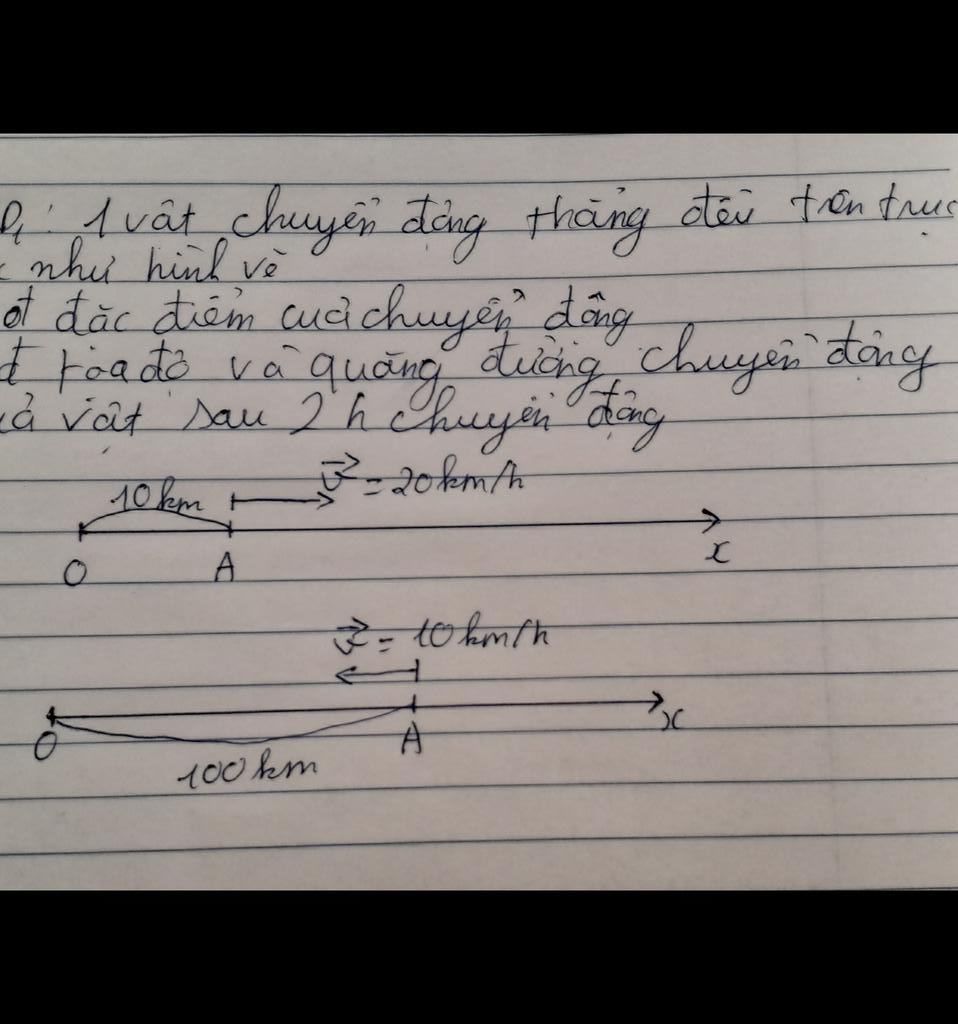 1 vật chuyển động thẳng đều trên trục
như hình vẽ
đặc điểm của chuyển động
tọa độ và quãng đường chuyển động
vật sau 2 h chuyển động
10 km
v = 20 km/h
O A x
v = 10 km/h
O A x
100 km